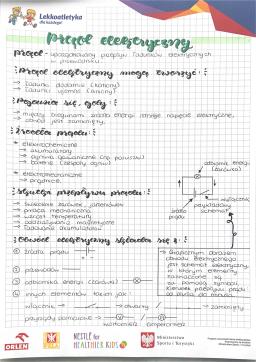 Lekkoatletyka
dla każdego!
Prąd elektryczny
Prąd - uporządkowany przepływ ładunków elektrycznych
w przewodniku.
Prąd elektryczny mogą tworzyć:
→ ładunki dodatnie (kationy)
→ ładunki ujemne (aniony)
Pojawia się, gdy:
→ między biegunami źródła energii istnieje napięcie elektryczne,
→ obwód jest zamknięty.
Źródła prądu:
→ elektrochemiczne
→ akumulatory
→ ogniwa galwaniczne (np. paluszki)
→ baterie (zespoły ogniw)
→ elektromagnetyczne
→ prądnice
odbiornik energii
(żarówka)
włącznik
przykładowy
schemat
źródło
prądu
Skutki przepływu prądu:
→ świecenie żarówek, jarzeniówek
→ praca mechaniczna
→ wzrost temperatury
→ oddziaływanie magnetyczne
→ ładowanie akumulatora
Obwód elektryczny składa się z:
źródła prądu
przewodów
odbiornika energii (żarówki)
innych elementów takich jak:
włącznik → otwarty → zamknięty
przyrządy pomiarowe →
woltomierz amperomierz
Graficznym obrazem
obwodu elektrycznego
jest schemat elektryczny,
w którym elementy
zaznaczane są
za pomocą symboli.
Kierunek przepływu prądu
ORLEN
NESTLÉ for
HEALTHIER KIDS
Ministerstwo
Sportu i Turystyki